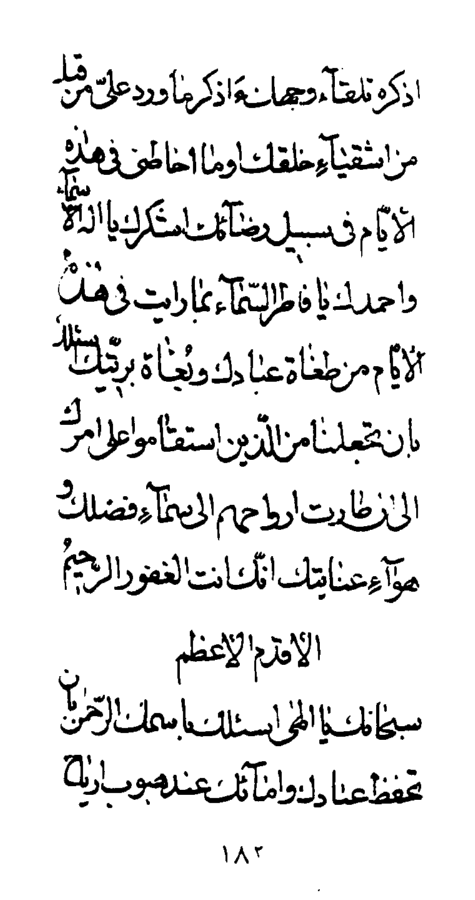 اذكره تلقآء وجهك ءَاذكر ما ورد علیّ من قبل
من اشقيآءِ خلقك او ما احاطنی فی هذه
الأيّام فی سبيل رضآئك اشكرك يا اله الأسمآء
و احمدك يا فاطر السّمآء بما رايت فی هذه
الأيّام من طغاة عبادك و بُغاة بريّتك اسئلك
بان تجعلنا من الّذين استقاموا علی امرك
الی ان طارت ارواحهم الی سمآءِ فضلك و
هوآءِ عنايتك انّك انت الغفور الرّحيمُ
الأقدم الأعظم
سبحانك يا الهی اسئلك باسمك الرّحمن بان
تحفظ عبادك و امآئك عند هبوب ارياح
١٨٢